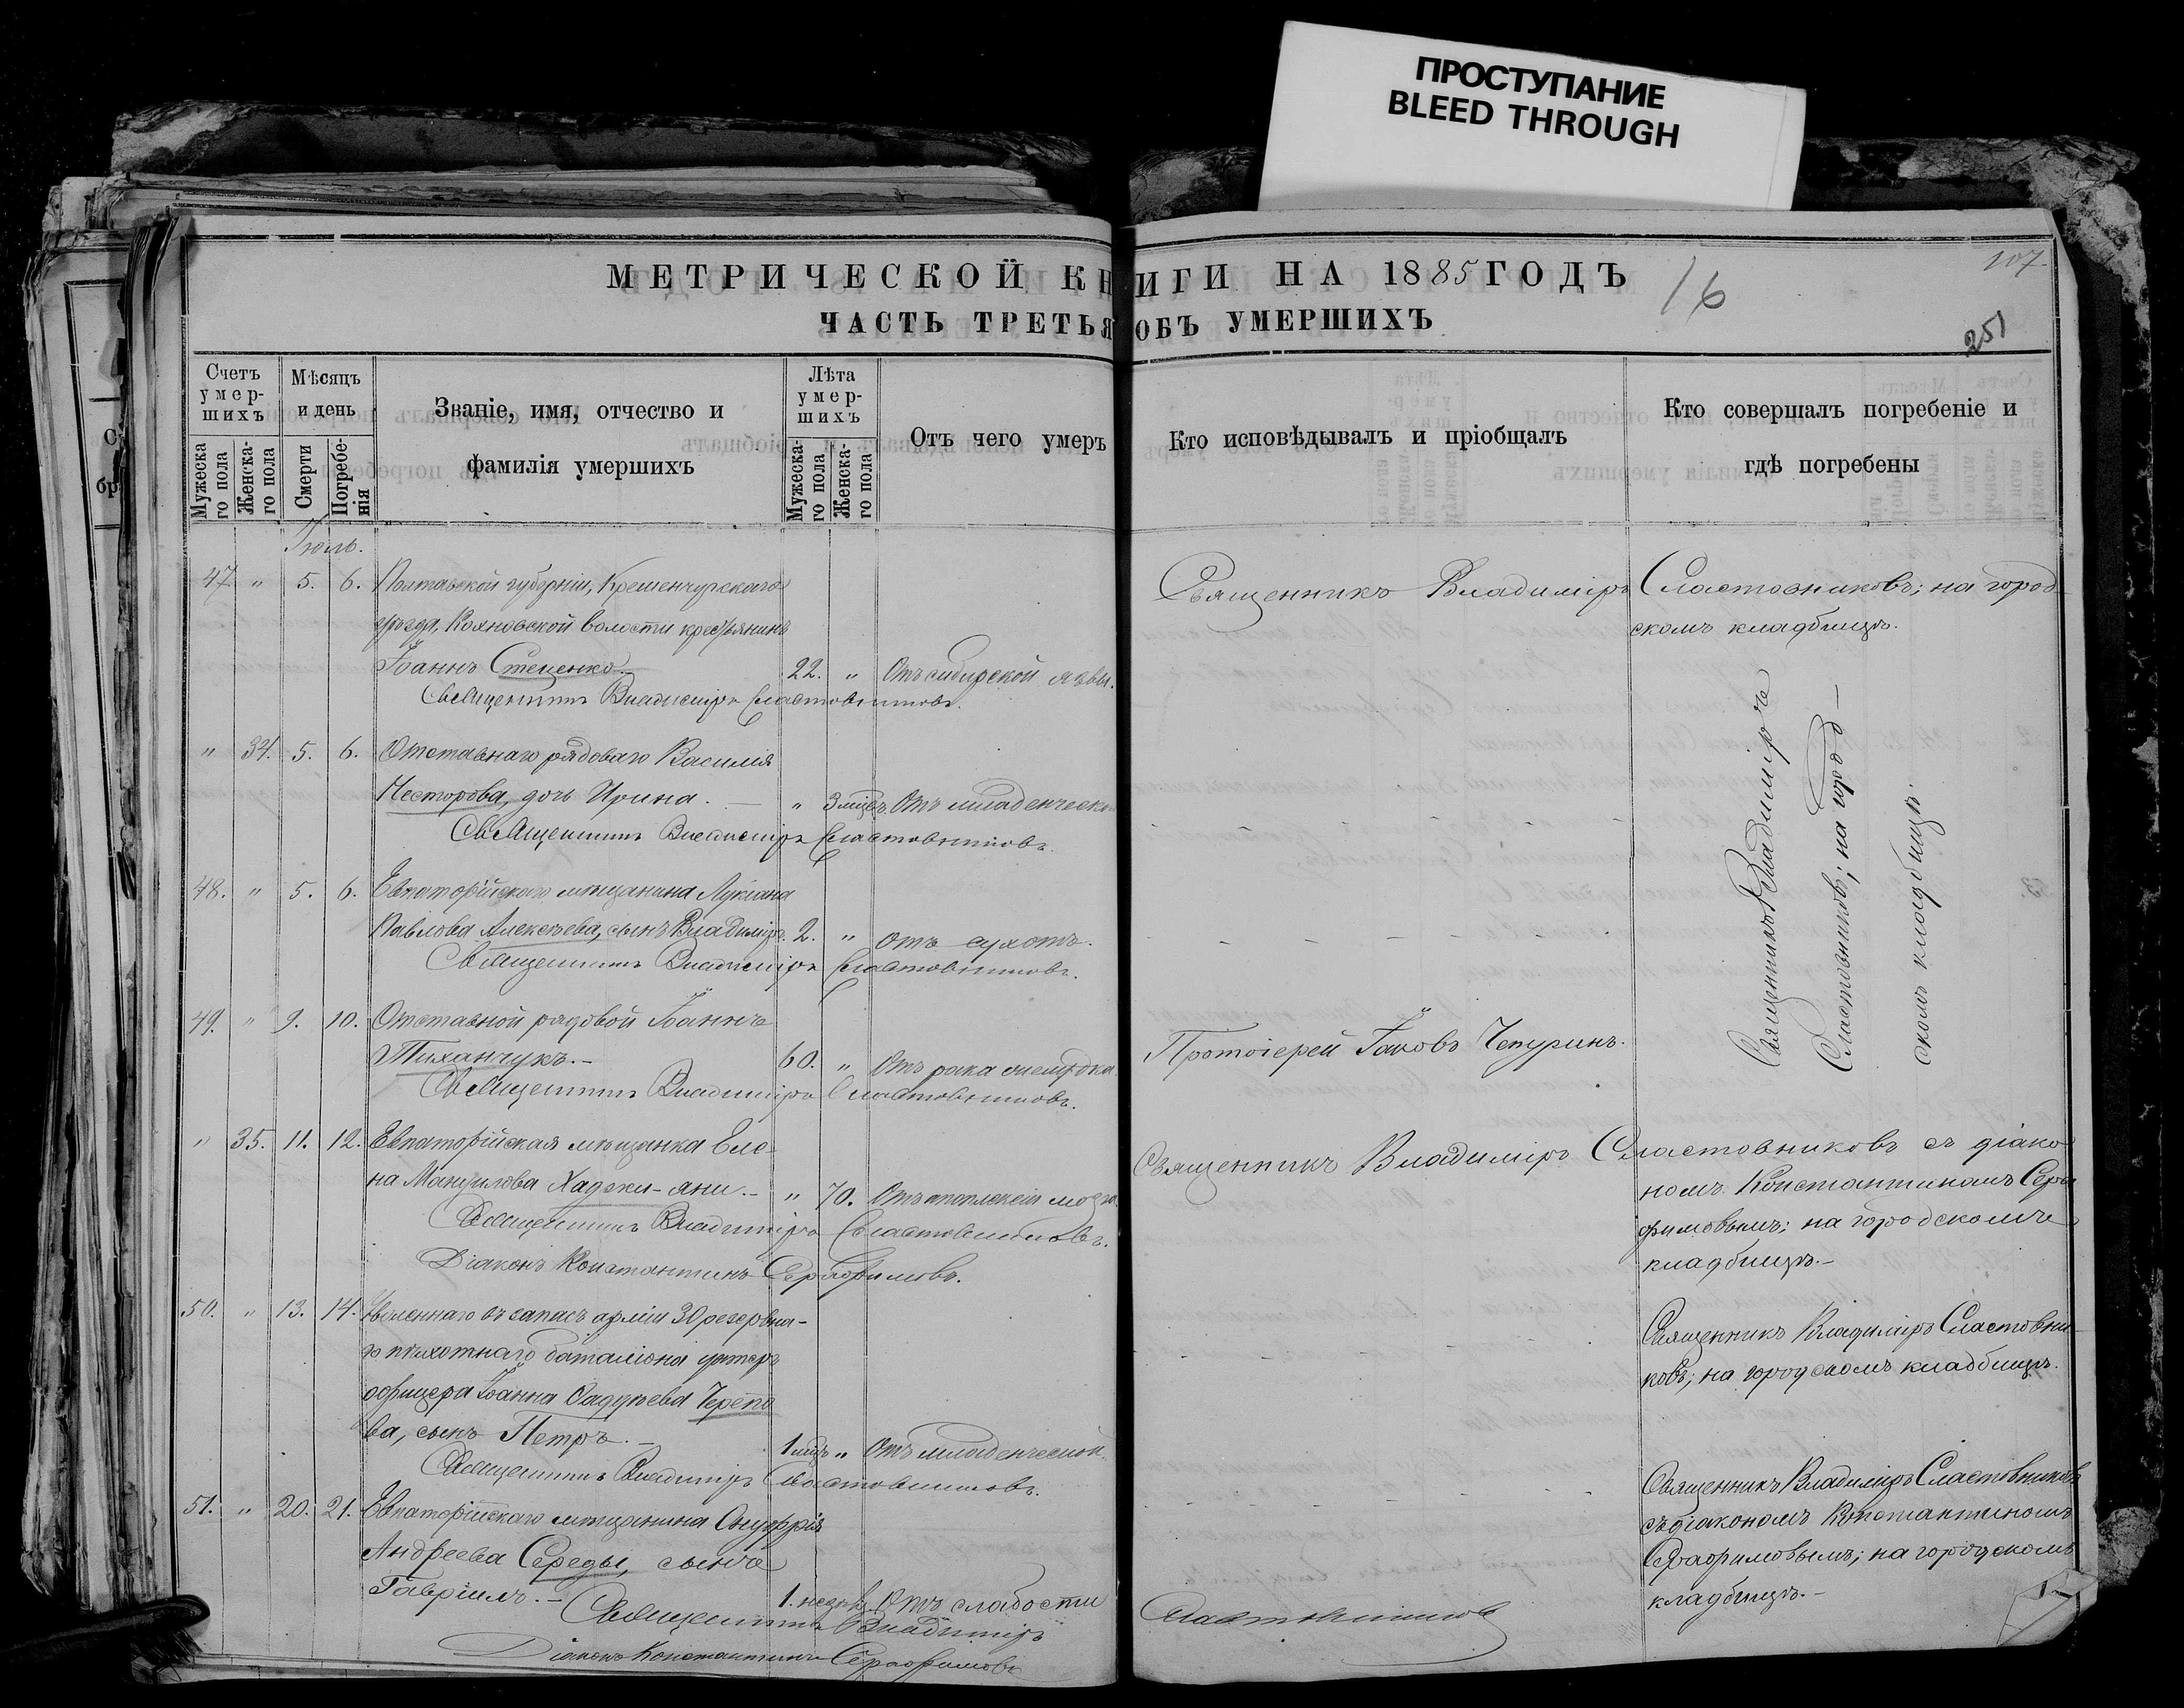 ПРОСТУПАНИЕ
BLEED THROUGH
МЕТРИЧЕСКОЙ КНИГИ НА 1885 ГОДЪ
16
107.
251
ЧАСТЬ ТРЕТЬЯ ОБЪ УМЕРШИХЪ
Счетъ умер-шихъ
Мѣсяцъ и день
Званіе, имя, отчество и фамилія умершихъ
Лѣта умер-шихъ
Отъ чего умеръ
Кто исповѣдывалъ и пріобщалъ
Кто совершалъ погребеніе и гдѣ погребены
Мужеска-го пола
Женска-го пола
Смерти
Погребе-нія
Мужеска-го пола
Женска-го пола
Іюль.
47 " 5. 6. Полтавской губерніи, Кременчугскаго
уѣзда, Кохновской волости крестьянинъ
Іоаннъ Стеценко. 22. " Отъ сибирской язвы.
Священникъ Владиміръ Сластовниковъ.
Священникъ Владиміръ Сластовниковъ; на город-
скомъ кладбищѣ.
" 34. 5. 6. Отставнаго рядоваго Василія
Несторова, дочь Ирина. — " 3 мѣс. Отъ младенческ
Священникъ Владиміръ Сластовниковъ.
48. " 5. 6. Евпаторійскаго мѣщанина Лукіана
Павлова Алексѣева, сынъ Владиміръ. 2. " Отъ сухотъ.
Священникъ Владиміръ Сластовниковъ.
Священникъ Владиміръ
Сластовниковъ; на город-
скомъ кладбищѣ.
49. " 9. 10. Отставной рядовой Іоаннъ
Тиханчукъ. – 60. " Отъ рака желудка
Священникъ Владиміръ Сластовниковъ.
Протоіерей Іаковъ Чепуринъ.
" 35. 11. 12. Евпаторійская мѣщанка Еле-
на Хаджи-яни. – " 70. Отъ мозга.
Священникъ Владиміръ Сластовниковъ.
Діаконъ Константинъ Серафимовъ.
Священникъ Владиміръ Сластовниковъ съ діако-
номъ Константиномъ Сера-
фимовымъ; на городскомъ
кладбищѣ. –
50. " 13. 14. Уволеннаго въ запасъ арміи 30 резервна-
го пѣхотнаго баталіона унтеръ
офицера Іоанна Фаддѣева Черепо-
ва, сынъ Петръ. – 1 мѣс. " Отъ младенческой.
Священникъ Владиміръ Сластовниковъ.
Священникъ Владиміръ Сластовни-
ковъ; на городскомъ кладбищѣ.
51. " 20. 21. Евпаторійскаго мѣщанина Онуфрія
Андреева Середы, сынъ
Гавріилъ. – 1. недѣл. Отъ слабости
Священникъ Владиміръ Сластовниковъ
Діаконъ Константинъ Серафимовъ
Священникъ Владиміръ Сластовниковъ
съ діакономъ Константиномъ
Серафимовымъ; на городскомъ
кладбищѣ. –